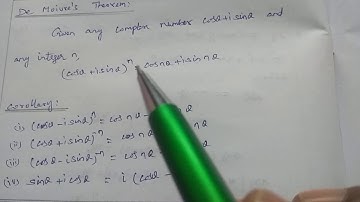 De Moivre's Theorem:
Given any complex number cosα+isinα and
any integer n,
(cosα+isinα)ⁿ cosnα+isinnα
Corollary:
i) (cosα-isinα)ⁿ = cosnα -
ii) (cosα+isinα)⁻ⁿ = cosnα
iii) (cosα-isinα)⁻ⁿ = cosnα
iv) sinα+icosα = i(cosα -